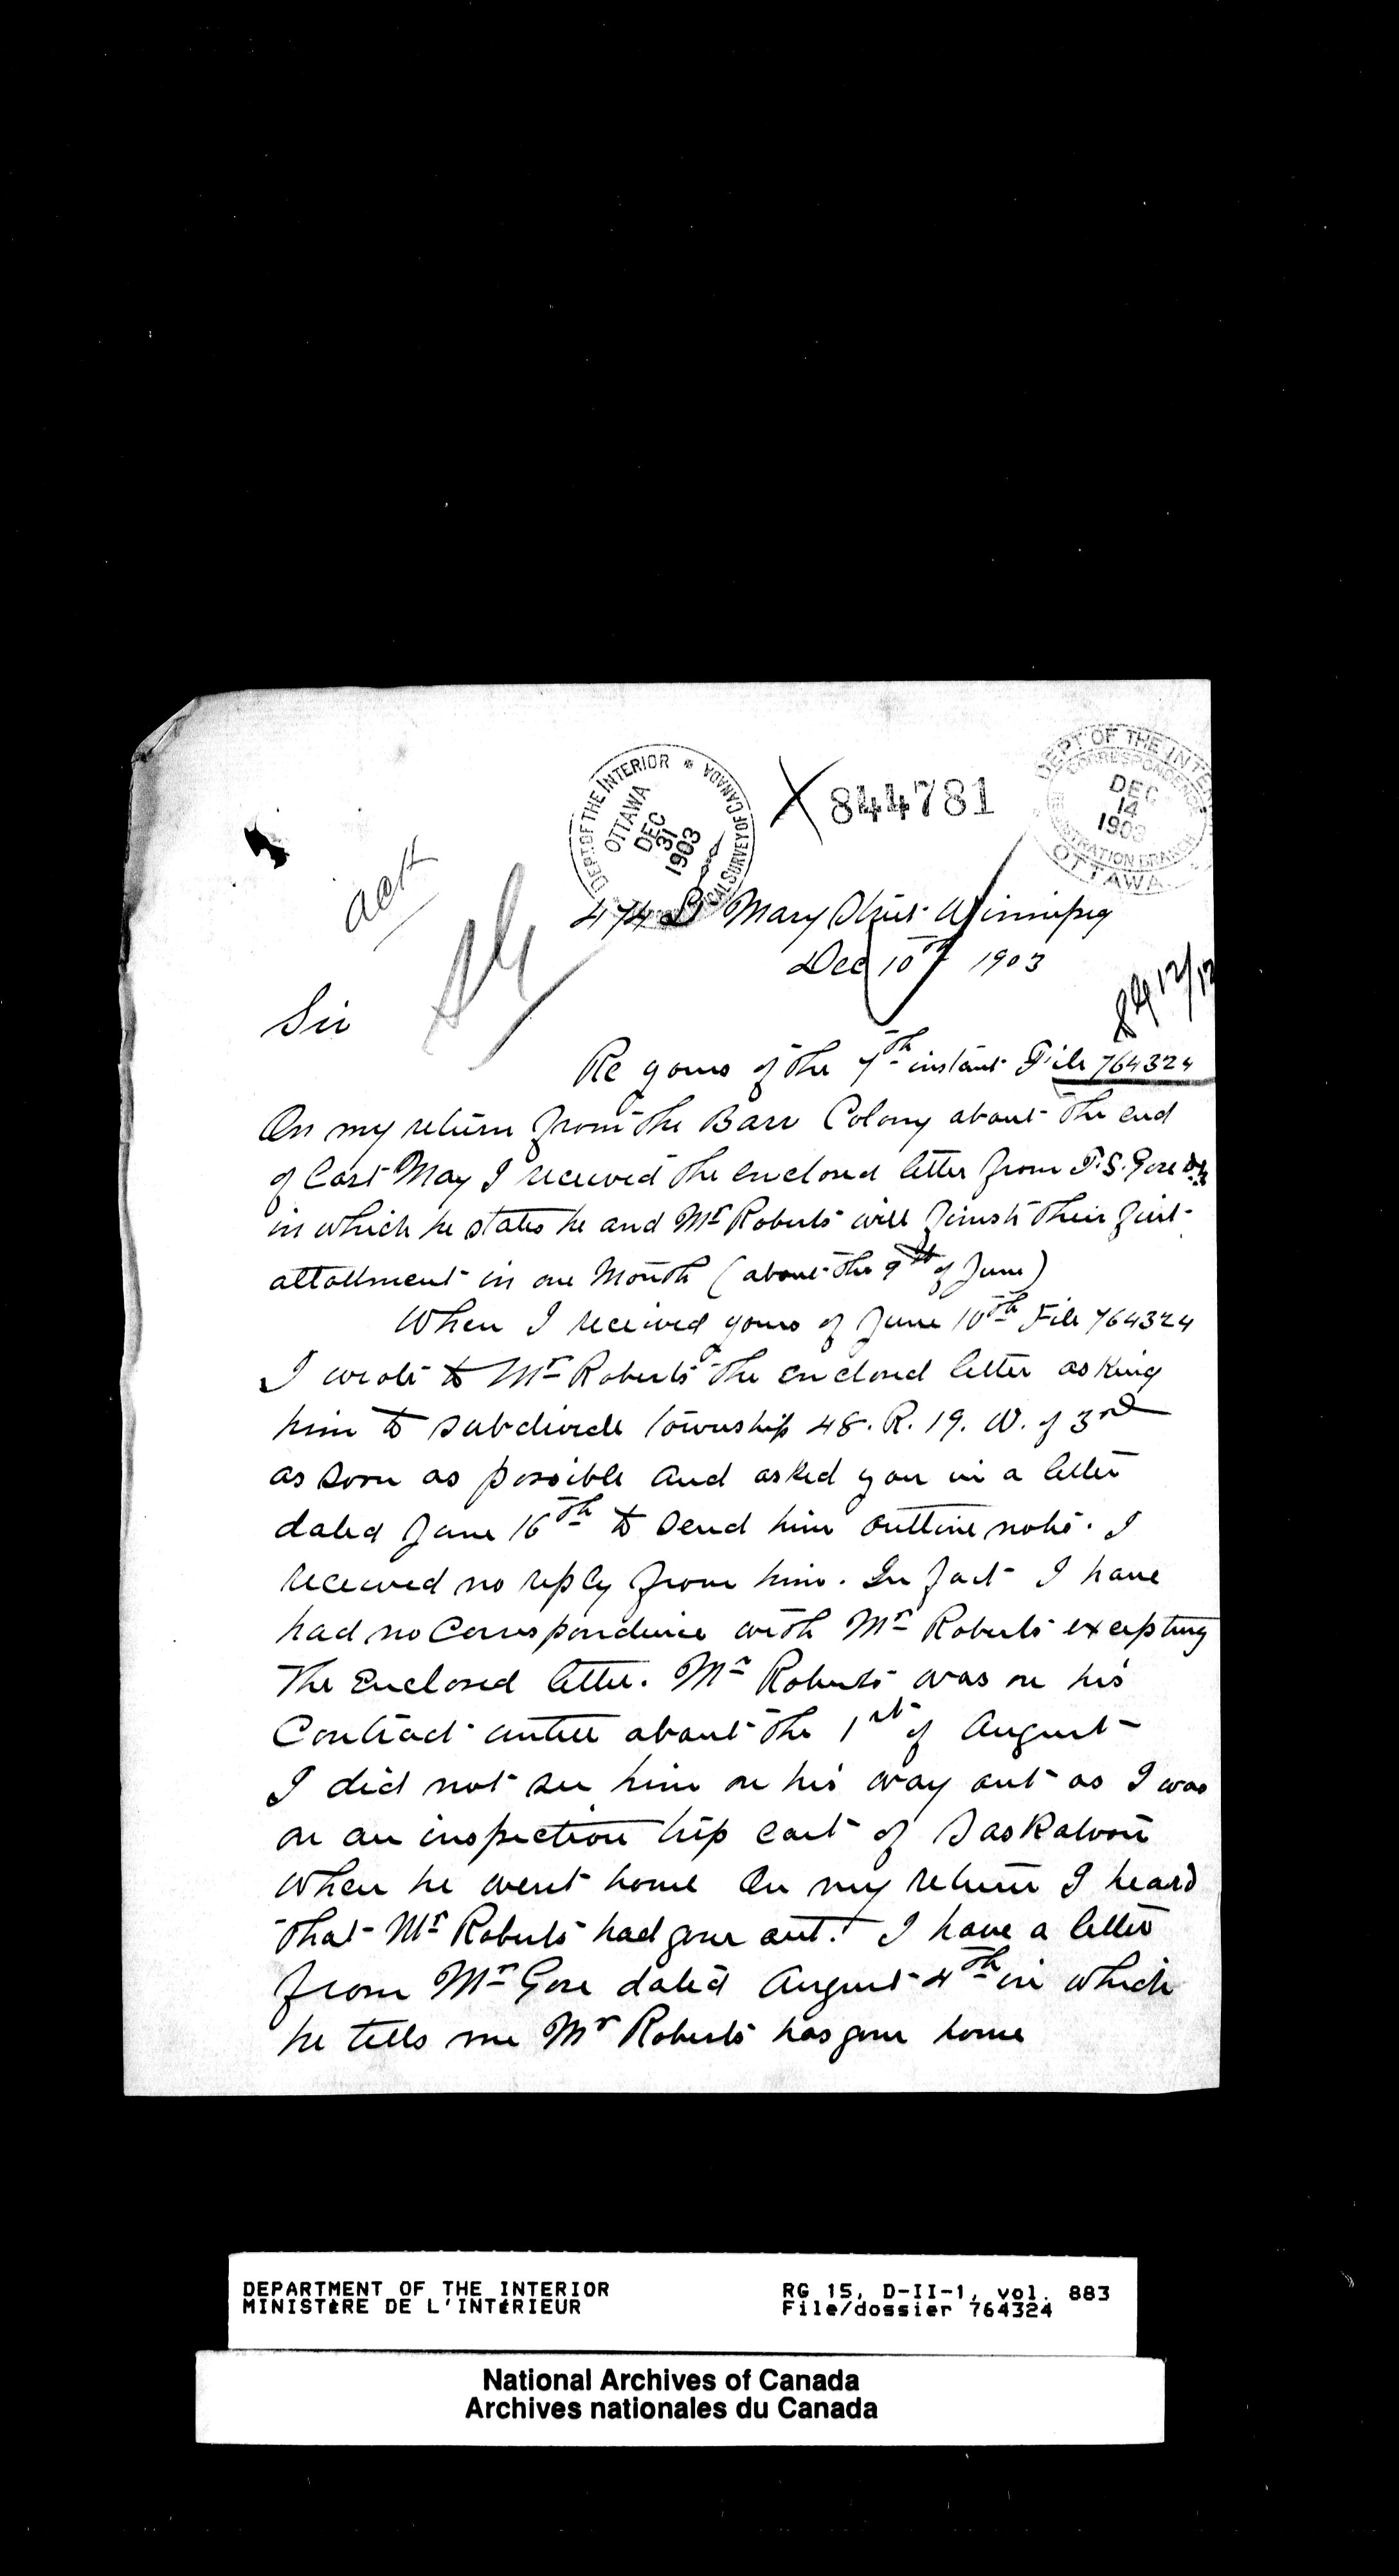 DEPT. OF THE INTERIOR * CALSURVEY OF CANADA
OTTAWA
DEC
31
1903
844781
DEPT OF THE INTE
CORRESPONDENCE
DEC
14
1903
STRATION BRANCH
OTTAWA
ack
474 St Mary Street Winnipeg
Dec 10th 1903
12/12
Sir
Re yours of the 7th instant File 764324
On my return from the Barr Colony about the end
of last May I received the enclosed letter from T.S. Gore
in which he states he and Mr Roberts will finish their first
attallment in one Month (about the 9th of June)
When I received yours of June 10th File 764324
I wrote to Mr Roberts the enclosed letter asking
him to subdivide township 48. R. 19. W. of 3rd
as soon as possible and asked you in a letter
dated June 16th to send him outline notes. I
received no reply from him. In fact I have
had no Correspondence with Mr Roberts excepting
The Enclosed letter. Mr Roberts was on his
Contract until about the 1st of August
I did not see him on his way out as I was
on an inspection trip east of Saskatoon
when he went home On my return I heard
that Mr Roberts had gone out. I have a letter
from Mr Gore dated August 4th in which
he tells me Mr Roberts has gone home
DEPARTMENT OF THE INTERIOR
MINISTÈRE DE L'INTÉRIEUR
RG 15, D-II-1, vol. 883
File/dossier 764324
National Archives of Canada
Archives nationales du Canada